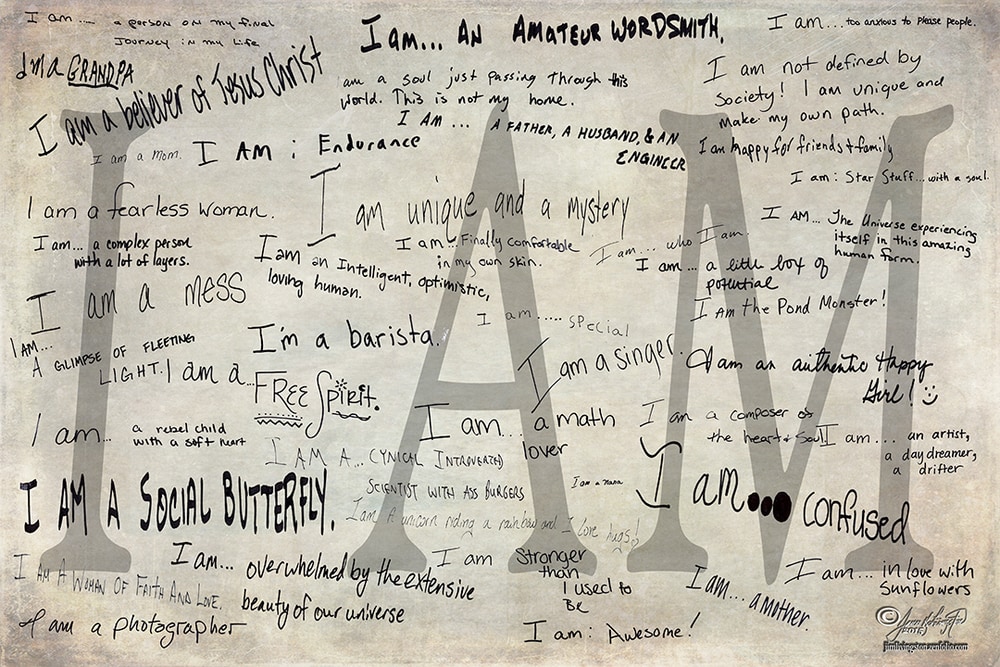 I am.... a person on my final
Journey in my life
I am... AN AMATEUR WORDSMITH.
I am... too anxious to please people.
I'm a GRANDPA
I am a believer of Jesus Christ
am a soul just passing through this
world. This is not my home.
I am not defined by
society! I am unique and
make my own path.
I AM ... A FATHER, A HUSBAND, & AN
ENGINEER
I am a mom.
I AM : Endurance
I am happy for friends + family
I am : Star Stuff... with a soul.
I am a fearless woman.
I am unique and a mystery
I AM... The Universe experiencing
itself in this amazing
human form.
I am... a complex person
with a lot of layers.
I am an Intelligent, optimistic,
loving human.
I am... Finally comfortable
in my own skin.
I am... who I am.
I am ... a little box of
potential
I am a mess
I am the Pond Monster!
I am..... special
I AM...
A GLIMPSE OF FLEETING
LIGHT.
I'm a barista.
I am a singer.
I am an authentic Happy
Girl!
I am a...
FREE Spirit.
I am... a math
lover
I am a composer of
the heart + soul
I am... an artist,
a day dreamer,
a drifter
I am... a rebel child
with a soft heart
I AM A... CYNICAL INTROVERTED
SCIENTIST WITH ASS BURGERS
I am a nana
I am... confused
I AM A SOCIAL BUTTERFLY.
I am A unicorn riding a rainbow and I love hugs!
I am... overwhelmed by the extensive
beauty of our universe
I am Stronger
than
I used to
Be
I AM A WOMAN OF FAITH AND LOVE.
I am... a mother.
I am... in love with
Sunflowers
I am a photographer
I am : Awesome!
I AM
©
2015
jimlivingston.zenfolio.com